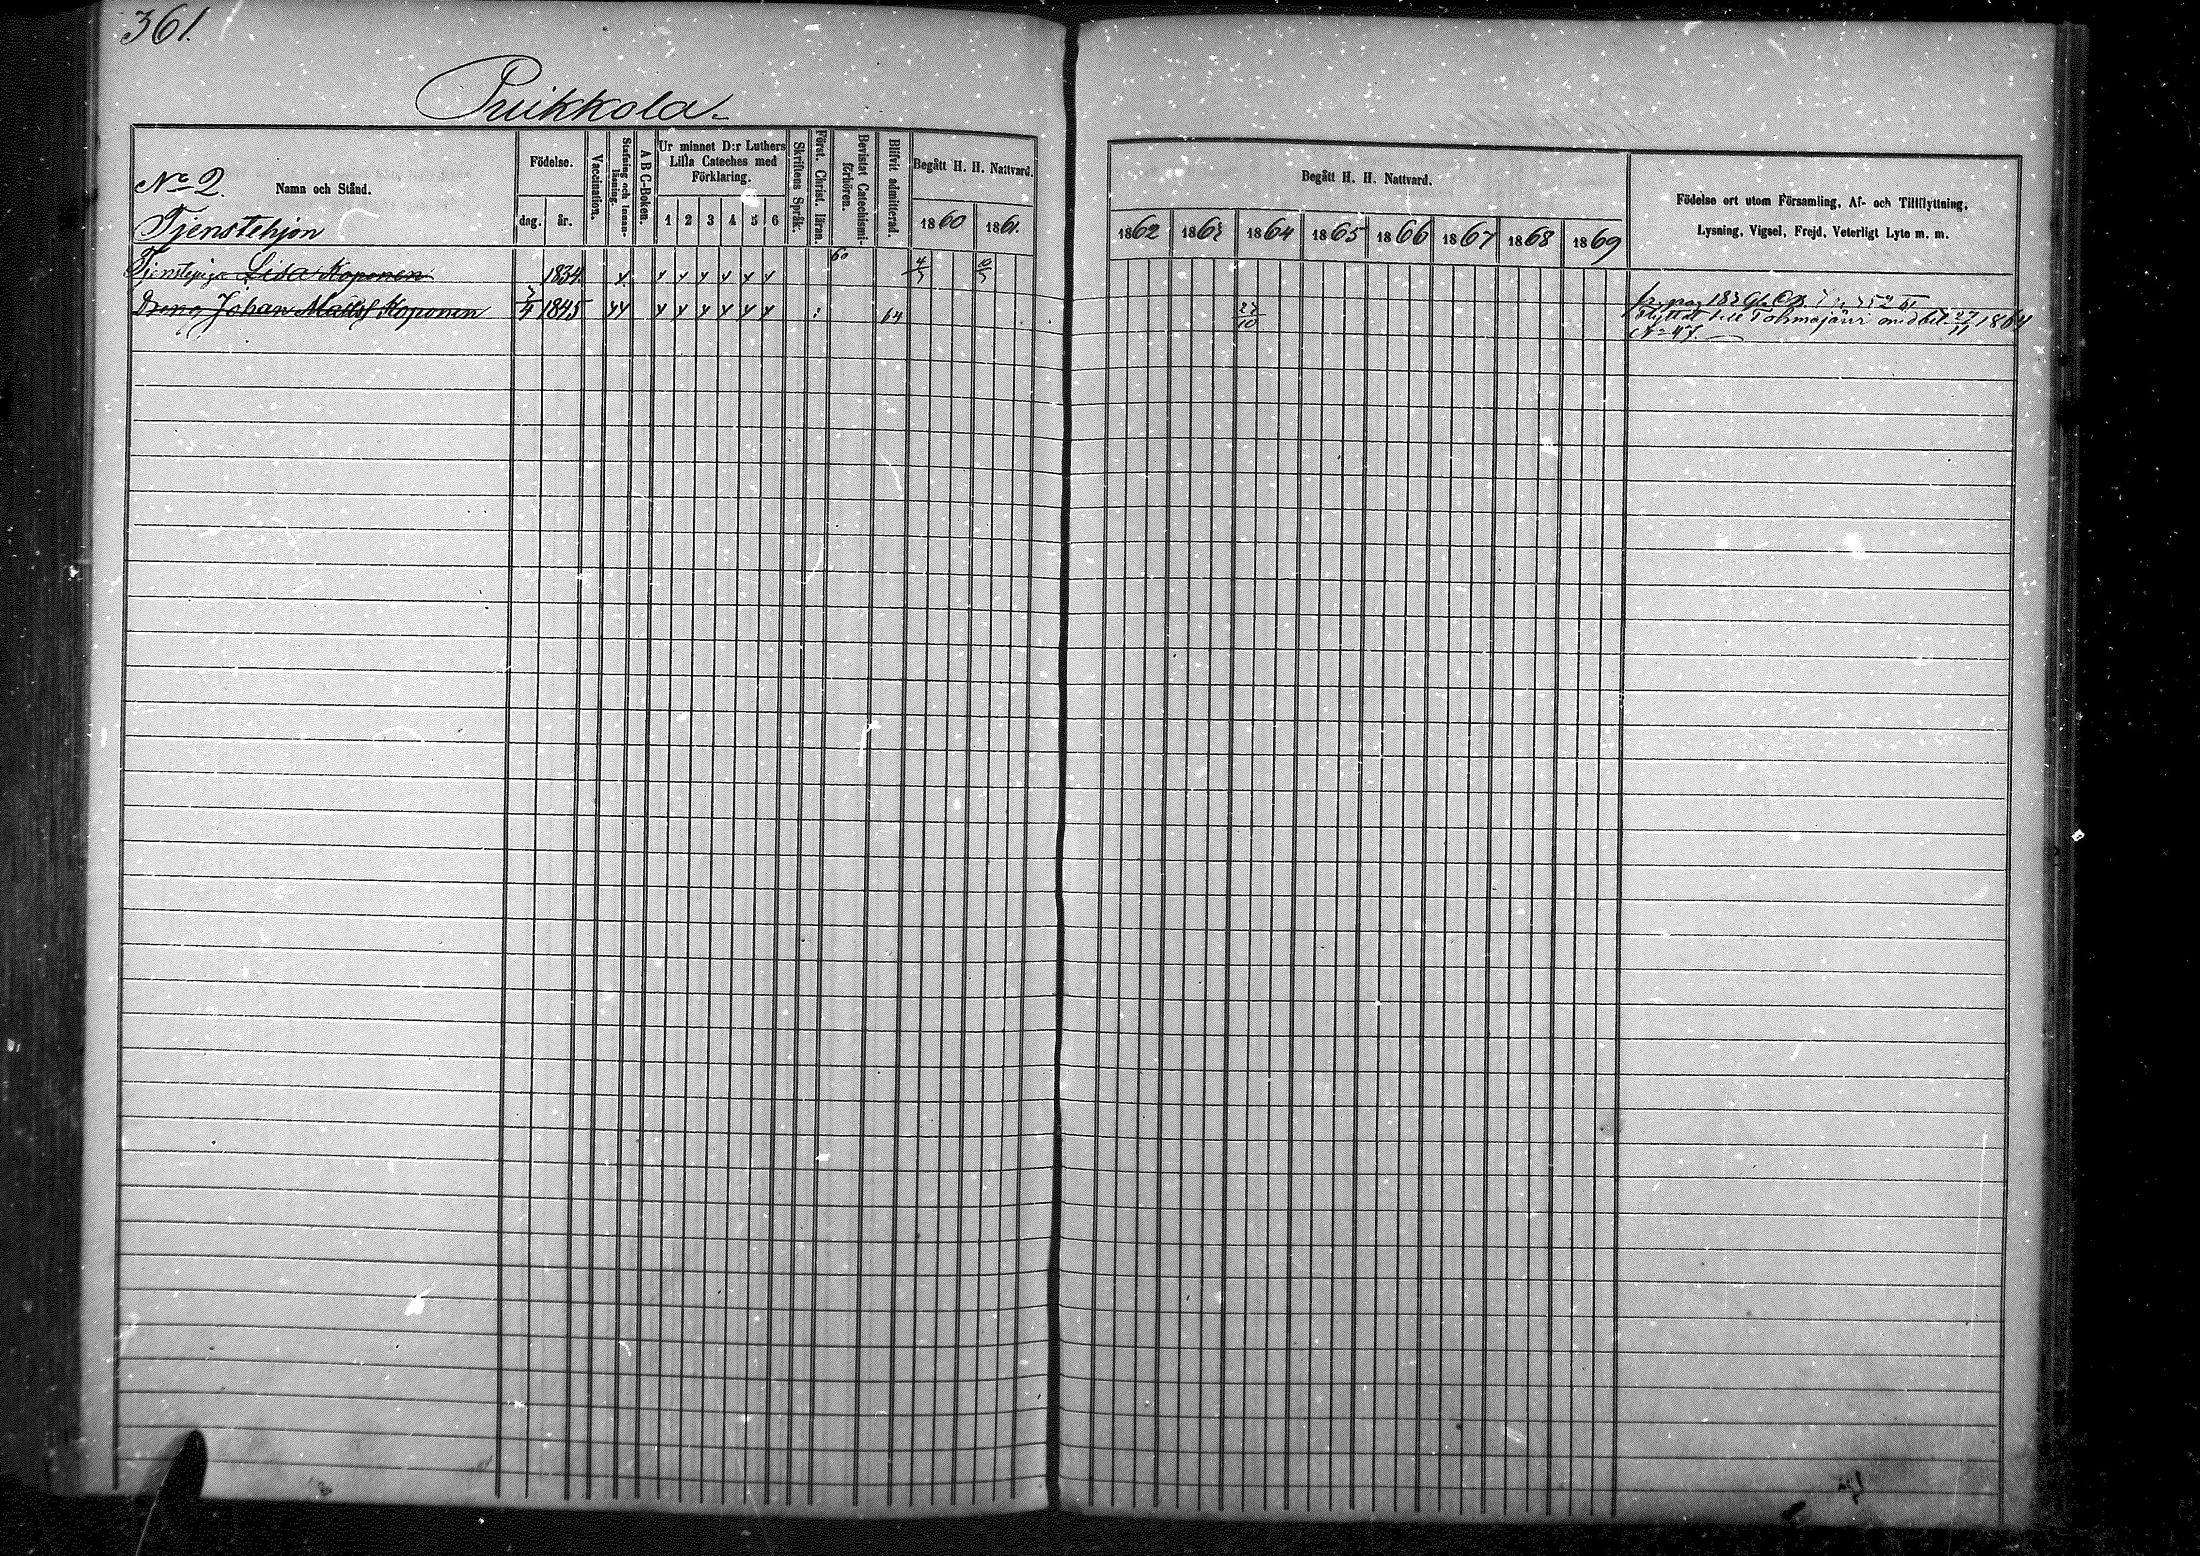 361.
Puikkola.
No 2.
Namn och Stånd.
Tjenstehjon
Födelse.
dag. år.
Vaccination.
Stafning och Innan-läsning.
A B C-Boken.
Ur minnet D:r Luthers
Lilla Cateches med
Förklaring.
1 2 3 4 5 6
Skriftens Språk.
Först. Christ. läran.
Bevistat Catechismi-förhören.
Blifvit admitterad.
Begått H. H. Nattvard.
1860 1861.
Begått H. H. Nattvard.
1862 1863 1864 1865 1866 1867 1868 1869
Födelse ort utom Församling, Af- och Tillflyttning,
Lysning, Vigsel, Frejd, Veterligt Lyte m. m.
Tjenstepiga Lisa Koponen 1834. 60 4/5 10/5
fr. pag 183 Gl. C.B.
Dreng Johan Matts Koponen 3/4 1845 64 23/10
flyttat till Tohmajärvi med bet. 27/11 1864
No 47.